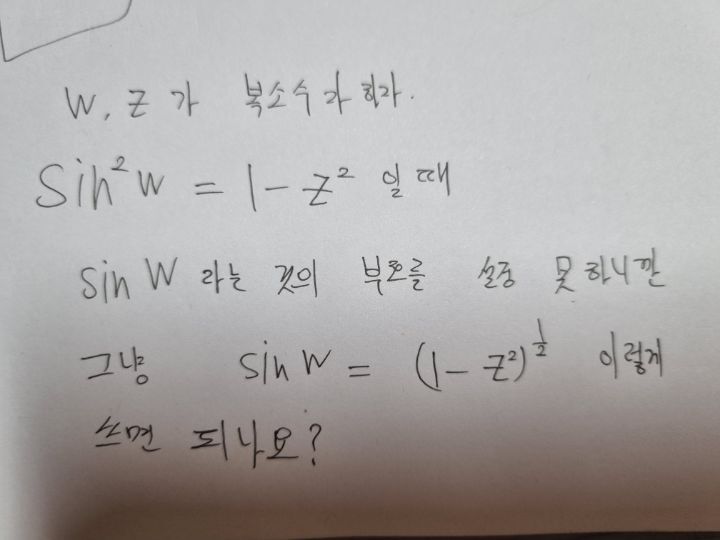 W, Z가 복소수라 하자.
Sin²W = 1 - Z² 일 때
Sin W 라는 것의 부호를 설정 못하니깐
그냥 sin W = (1 - Z²)^½ 이렇게
쓰면 되나요?